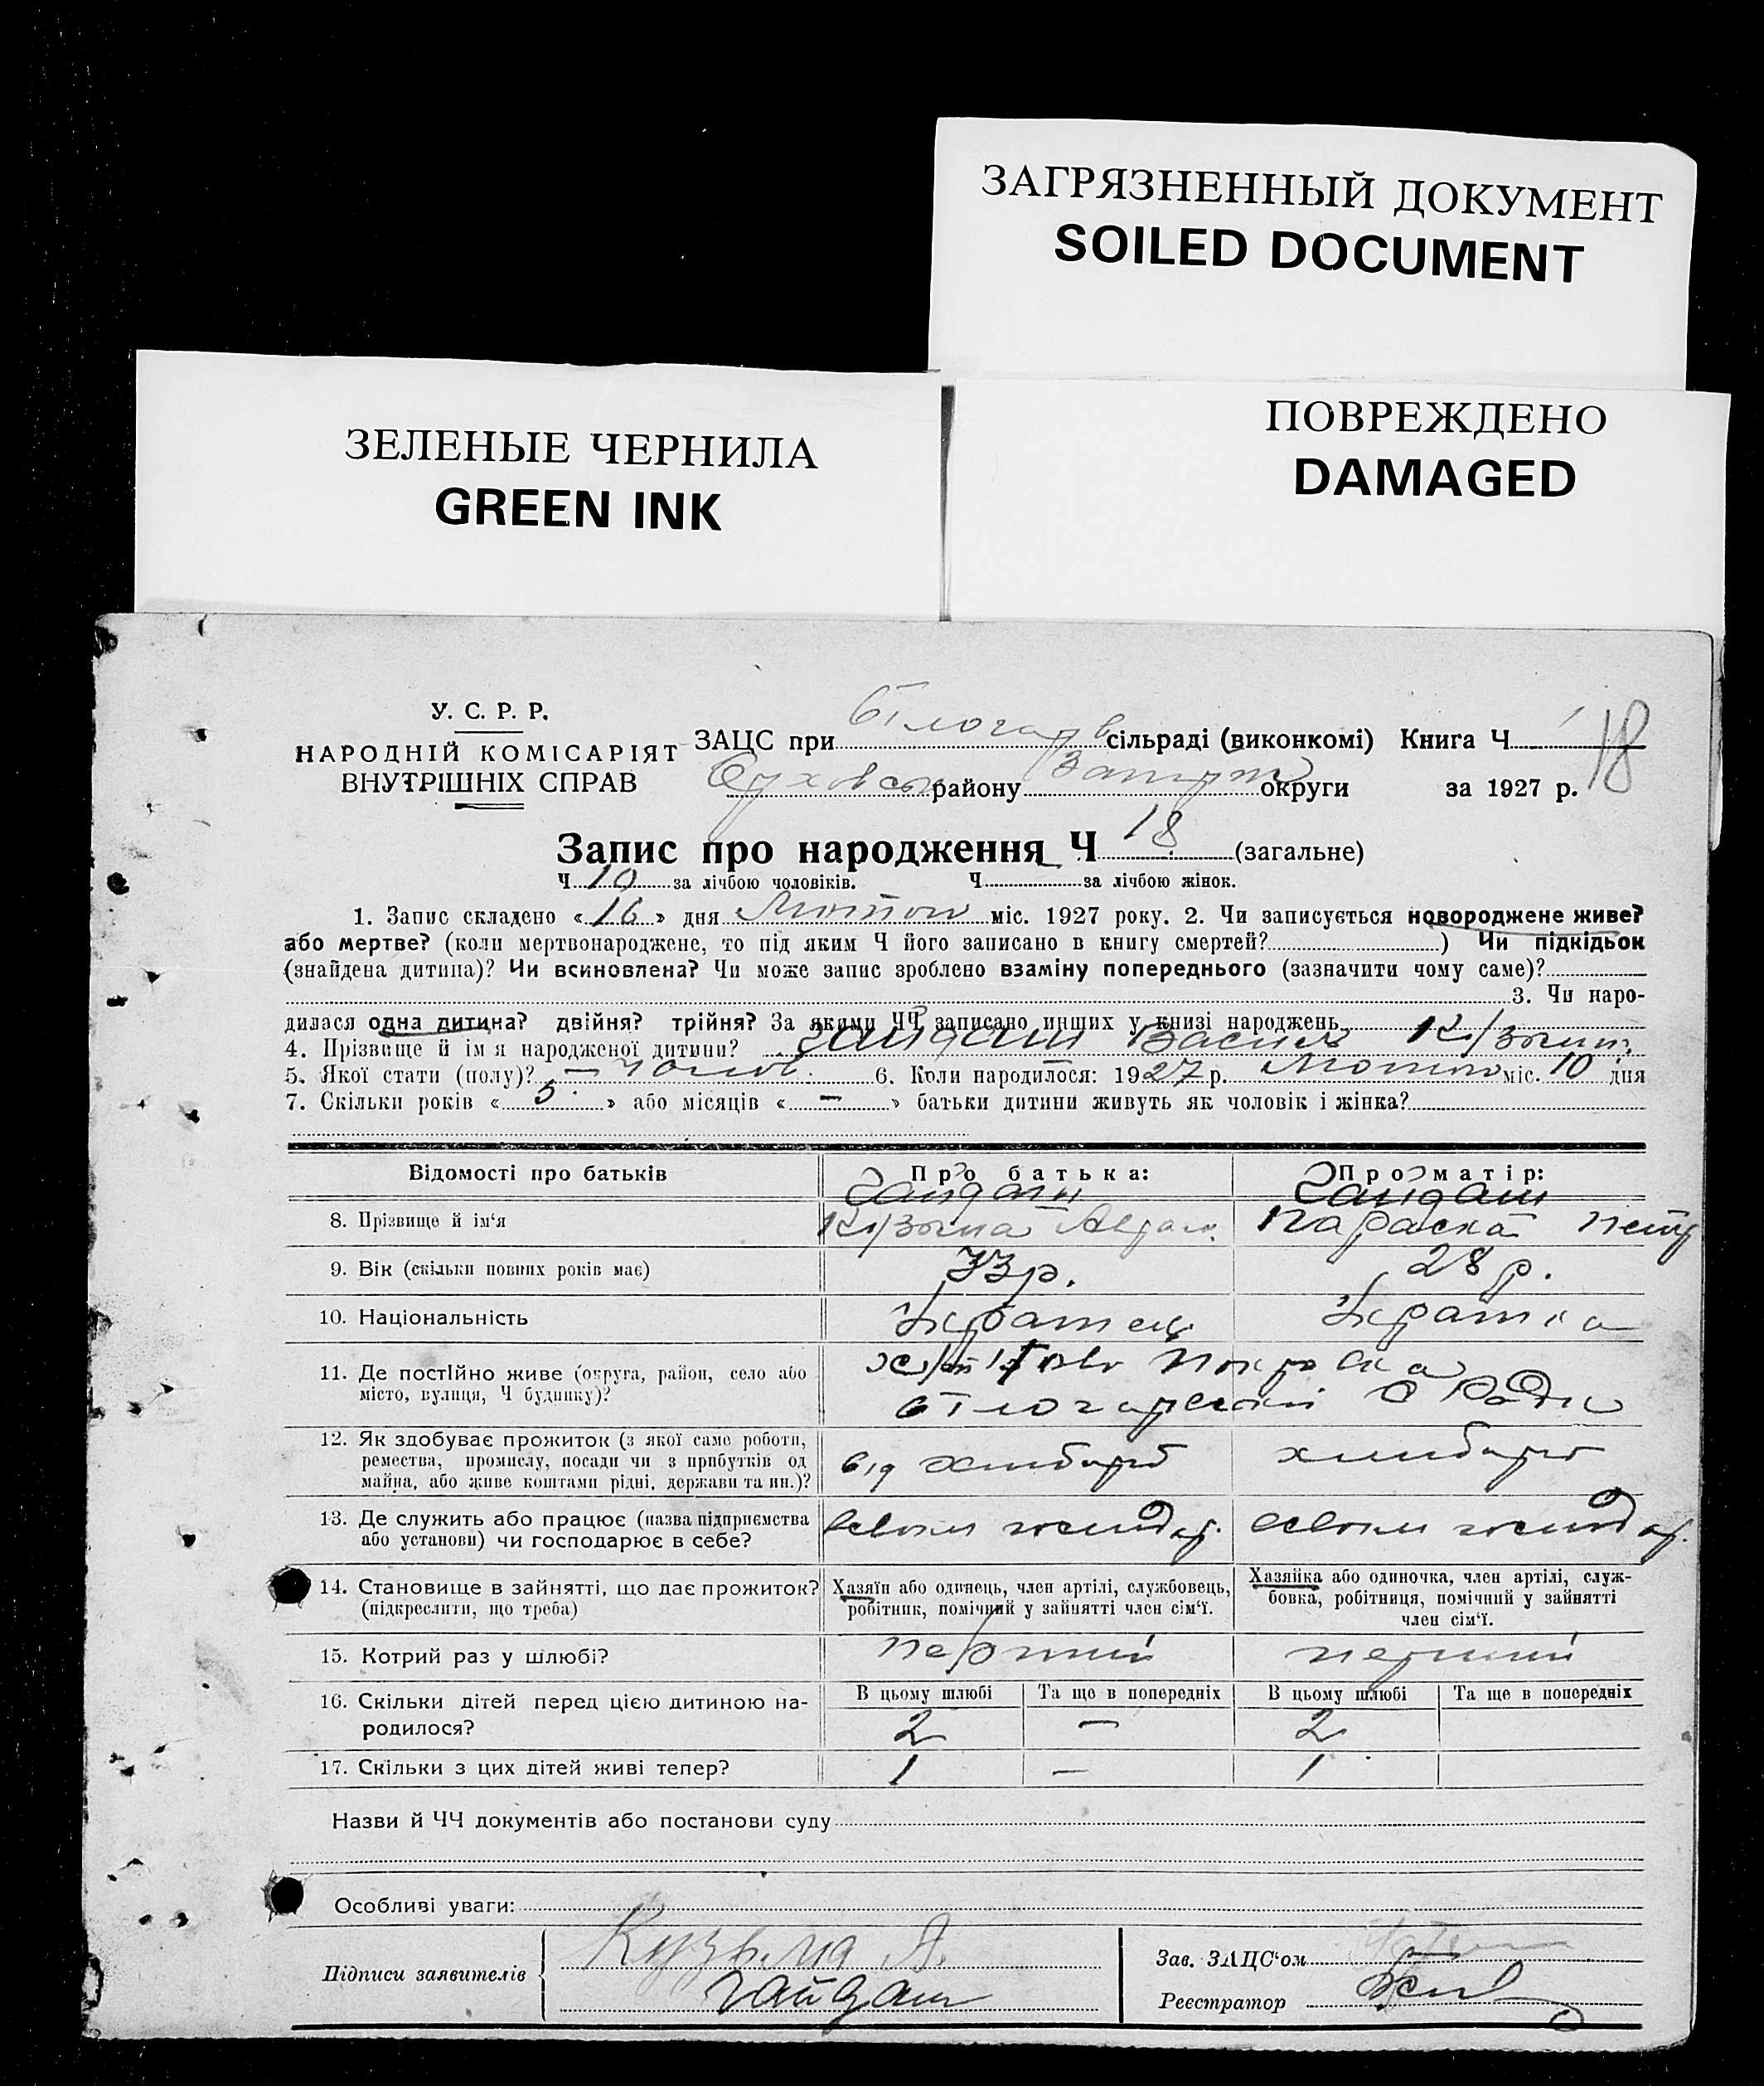 ЗАГРЯЗНЕННЫЙ ДОКУМЕНТ
SOILED DOCUMENT
ЗЕЛЕНЫЕ ЧЕРНИЛА
GREEN INK
ПОВРЕЖДЕНО
DAMAGED
У. С. Р. Р.
НАРОДНІЙ КОМІСАРІЯТ
ВНУТРІШНІХ СПРАВ
ЗАЦС при сільраді (виконкомі) Книга Ч 18
району округи за 1927 р.
Запис про народження Ч 18 (загальне)
Ч 10 за лічбою чоловіків. Ч — за лічбою жінок.
1. Запис складено «16» дня Лютого міс. 1927 року. 2. Чи записується новороджене живе?
або мертве? (коли мертвонароджене, то під яким Ч його записано в книгу смертей?) Чи підкідьок
(знайдена дитина)? Чи всиновлена? Чи може запис зроблено взаміну попереднього (зазначити чому саме)?
3. Чи наро-
дилася одна дитина? двійня? трійня? За якими ЧЧ записано инших у книзі народжень
4. Прізвище й імя народженої дитини? Гайдаш Василь
5. Якої стати (полу)? — 6. Коли народилося: 1927 р. Лютого міс. 10 дня
7. Скільки років «5» або місяців «—» батьки дитини живуть як чоловік і жінка?
Відомості про батьків Про батька: Про матір:
Гайдаш Гайдаш
8. Прізвище й ім'я Кузьма Параска Петр
9. Вік (скільки повних років має) 33р. 28 р.
10. Національність
11. Де постійно живе (округа, район, село або
місто, вулиця, Ч будинку)?
12. Як здобуває прожиток (з якої саме роботи,
ремества, промислу, посади чи з прибутків од
майна, або живе коштами рідні, держави та ин.)? від хлибороб хлибороб
13. Де служить або працює (назва підприємства
або установи) чи господарює в себе? всвоім господар. всвоім господар.
14. Становище в зайнятті, що дає прожиток?
(підкреслити, що треба)
Хазяїн або одинець, член артілі, службовець,
робітник, помічний у зайнятті член сім'ї.
Хазяйка або одиночка, член артілі, служ-
бовка, робітниця, помічний у зайнятті
член сім'ї.
15. Котрий раз у шлюбі? перший перший
16. Скільки дітей перед цією дитиною на-
родилося?
В цьому шлюбі Та ще в попередніх В цьому шлюбі Та ще в попередніх
2 — 2
17. Скільки з цих дітей живі тепер? 1 — 1
Назви й ЧЧ документів або постанови суду
Особливі уваги:
Підписи заявителів
Кузьма А.
Гайдаш
Зав. ЗАЦС'ом
Реєстратор